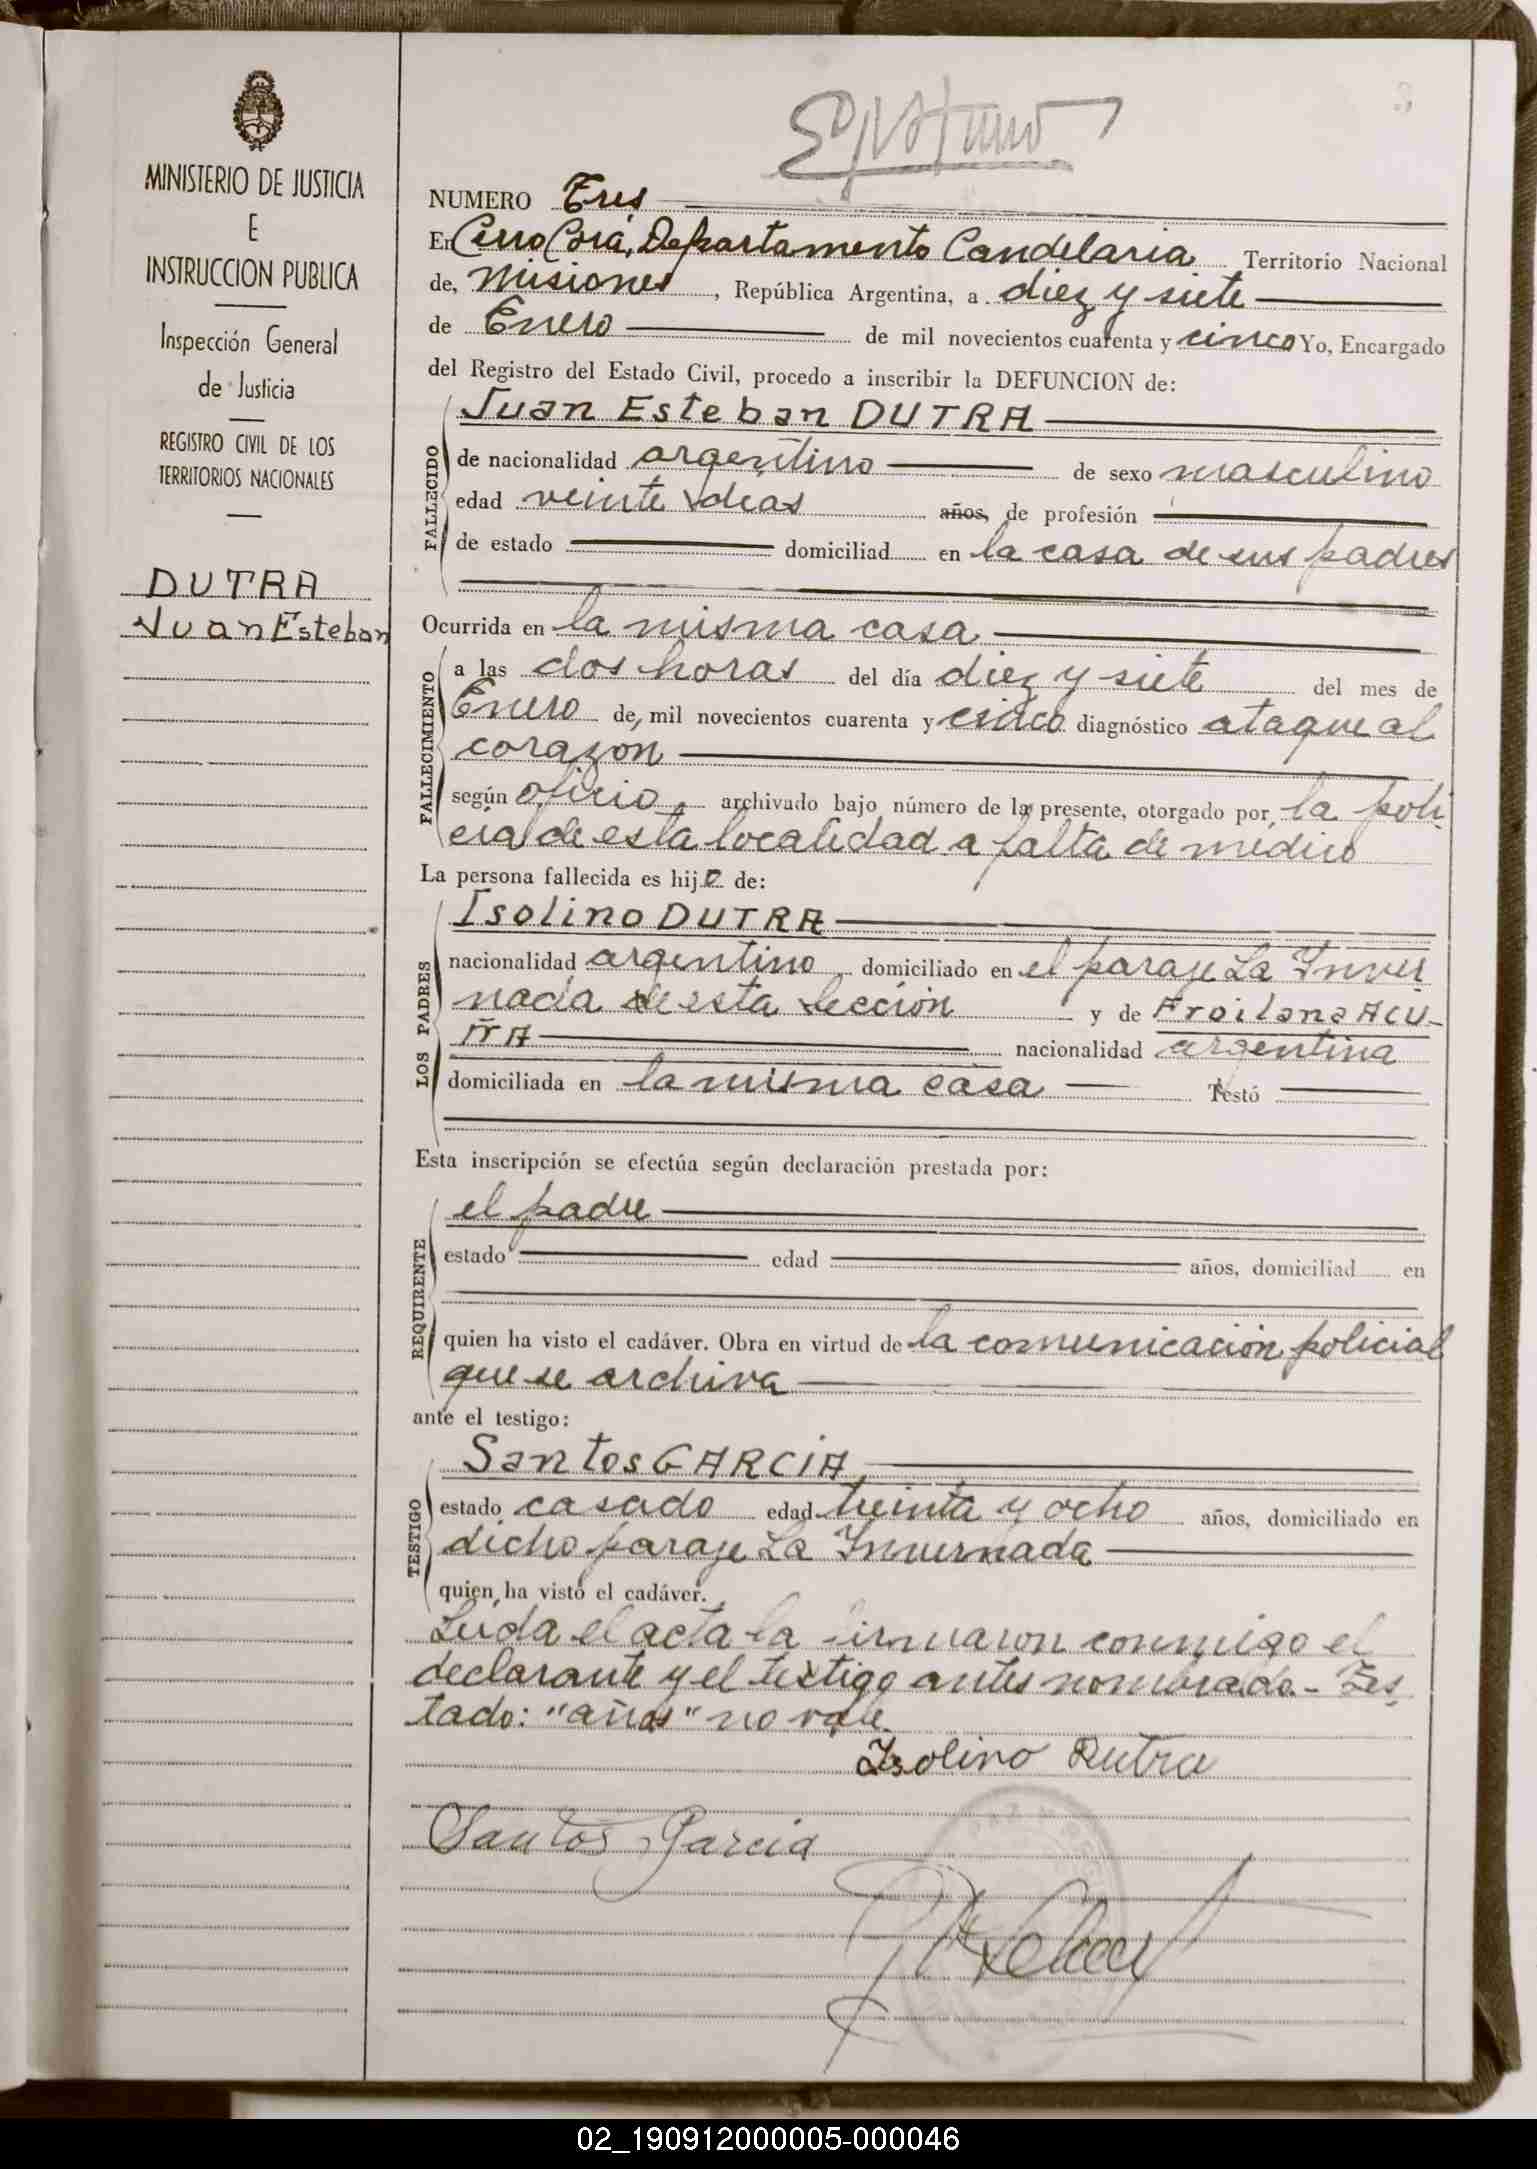 MINISTERIO DE JUSTICIA
E
INSTRUCCION PUBLICA
Inspección General
de Justicia
REGISTRO CIVIL DE LOS
TERRITORIOS NACIONALES
DUTRA
Juan Esteban
NUMERO Tres
En Cerro Corá, Departamento Candelaria Territorio Nacional
de, Misiones, República Argentina, a diez y siete
de Enero de mil novecientos cuarenta y cinco Yo, Encargado
del Registro del Estado Civil, procedo a inscribir la DEFUNCION de:
FALLECIDO
Juan Esteban DUTRA
de nacionalidad argentino de sexo masculino
edad veinte dias años, de profesión
de estado domiciliad en la casa de sus padres
Ocurrida en la misma casa
FALLECIMIENTO
a las dos horas del día diez y siete del mes de
Enero de, mil novecientos cuarenta y cinco diagnóstico ataque al
corazón
según oficio, archivado bajo número de la presente, otorgado por, la poli
cia de esta localidad a falta de medico
La persona fallecida es hijo de:
LOS PADRES
Isolino DUTRA
nacionalidad argentino, domiciliado en el paraje La Inver
nada de esta sección y de Froilana ACU-
ÑA nacionalidad argentina
domiciliada en la misma casa Testó
Esta inscripción se efectúa según declaración prestada por:
REQUIRENTE
el padre
estado edad años, domiciliad en
quien ha visto el cadáver. Obra en virtud de la comunicación policial
que se archiva
ante el testigo:
TESTIGO
Santos GARCIA,
estado casado edad treinta y ocho años, domiciliado en
dicho paraje La Invernada
quien ha visto el cadáver.
Leida el acta la firmaron conmigo el
declarante y el testigo antes nombrado.- Tes
tado: "años" no vale.
Isolino Dutra
Santos Garcia
02_190912000005-000046